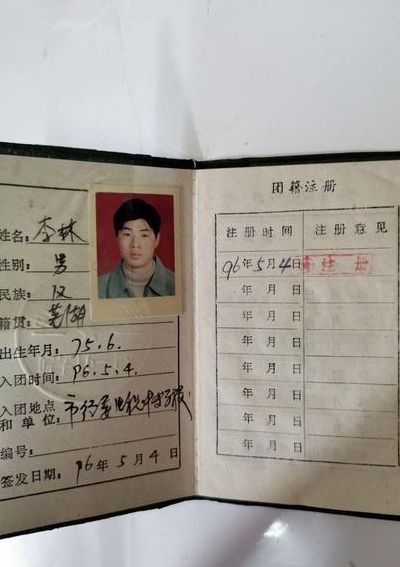 姓名: 李林
性别: 男
民族: 汉
籍贯: 芜湖
出生年月: 75.6.
入团时间: 96.5.4.
入团地点
和单位:
编号:
签发日期: 96年5月4日
团籍注册
注册时间 注册意见
96年5月4日 注册
年 月 日
年 月 日
年 月 日
年 月 日
年 月 日
年 月 日